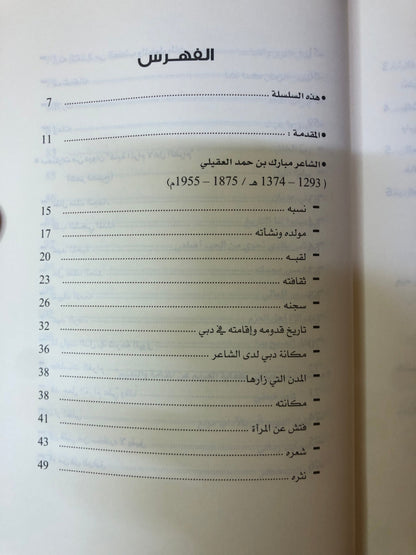 الفهرس
• هذه السلسلة ........ 7
• المقدمة : ........ 11
• الشاعر مبارك بن حمد العقيلي
( 1293 – 1374 هـ / 1875 – 1955م)
- نسبه ........ 15
- مولده ونشأته ........ 17
- لقبه ........ 20
- ثقافته ........ 23
- سجنه ........ 26
- تاريخ قدومه وإقامته في دبي ........ 32
- مكانة دبي لدى الشاعر ........ 36
- المدن التي زارها ........ 38
- مكانته ........ 38
- فتش عن المرأة ........ 41
- شعره ........ 43
- نثره ........ 49